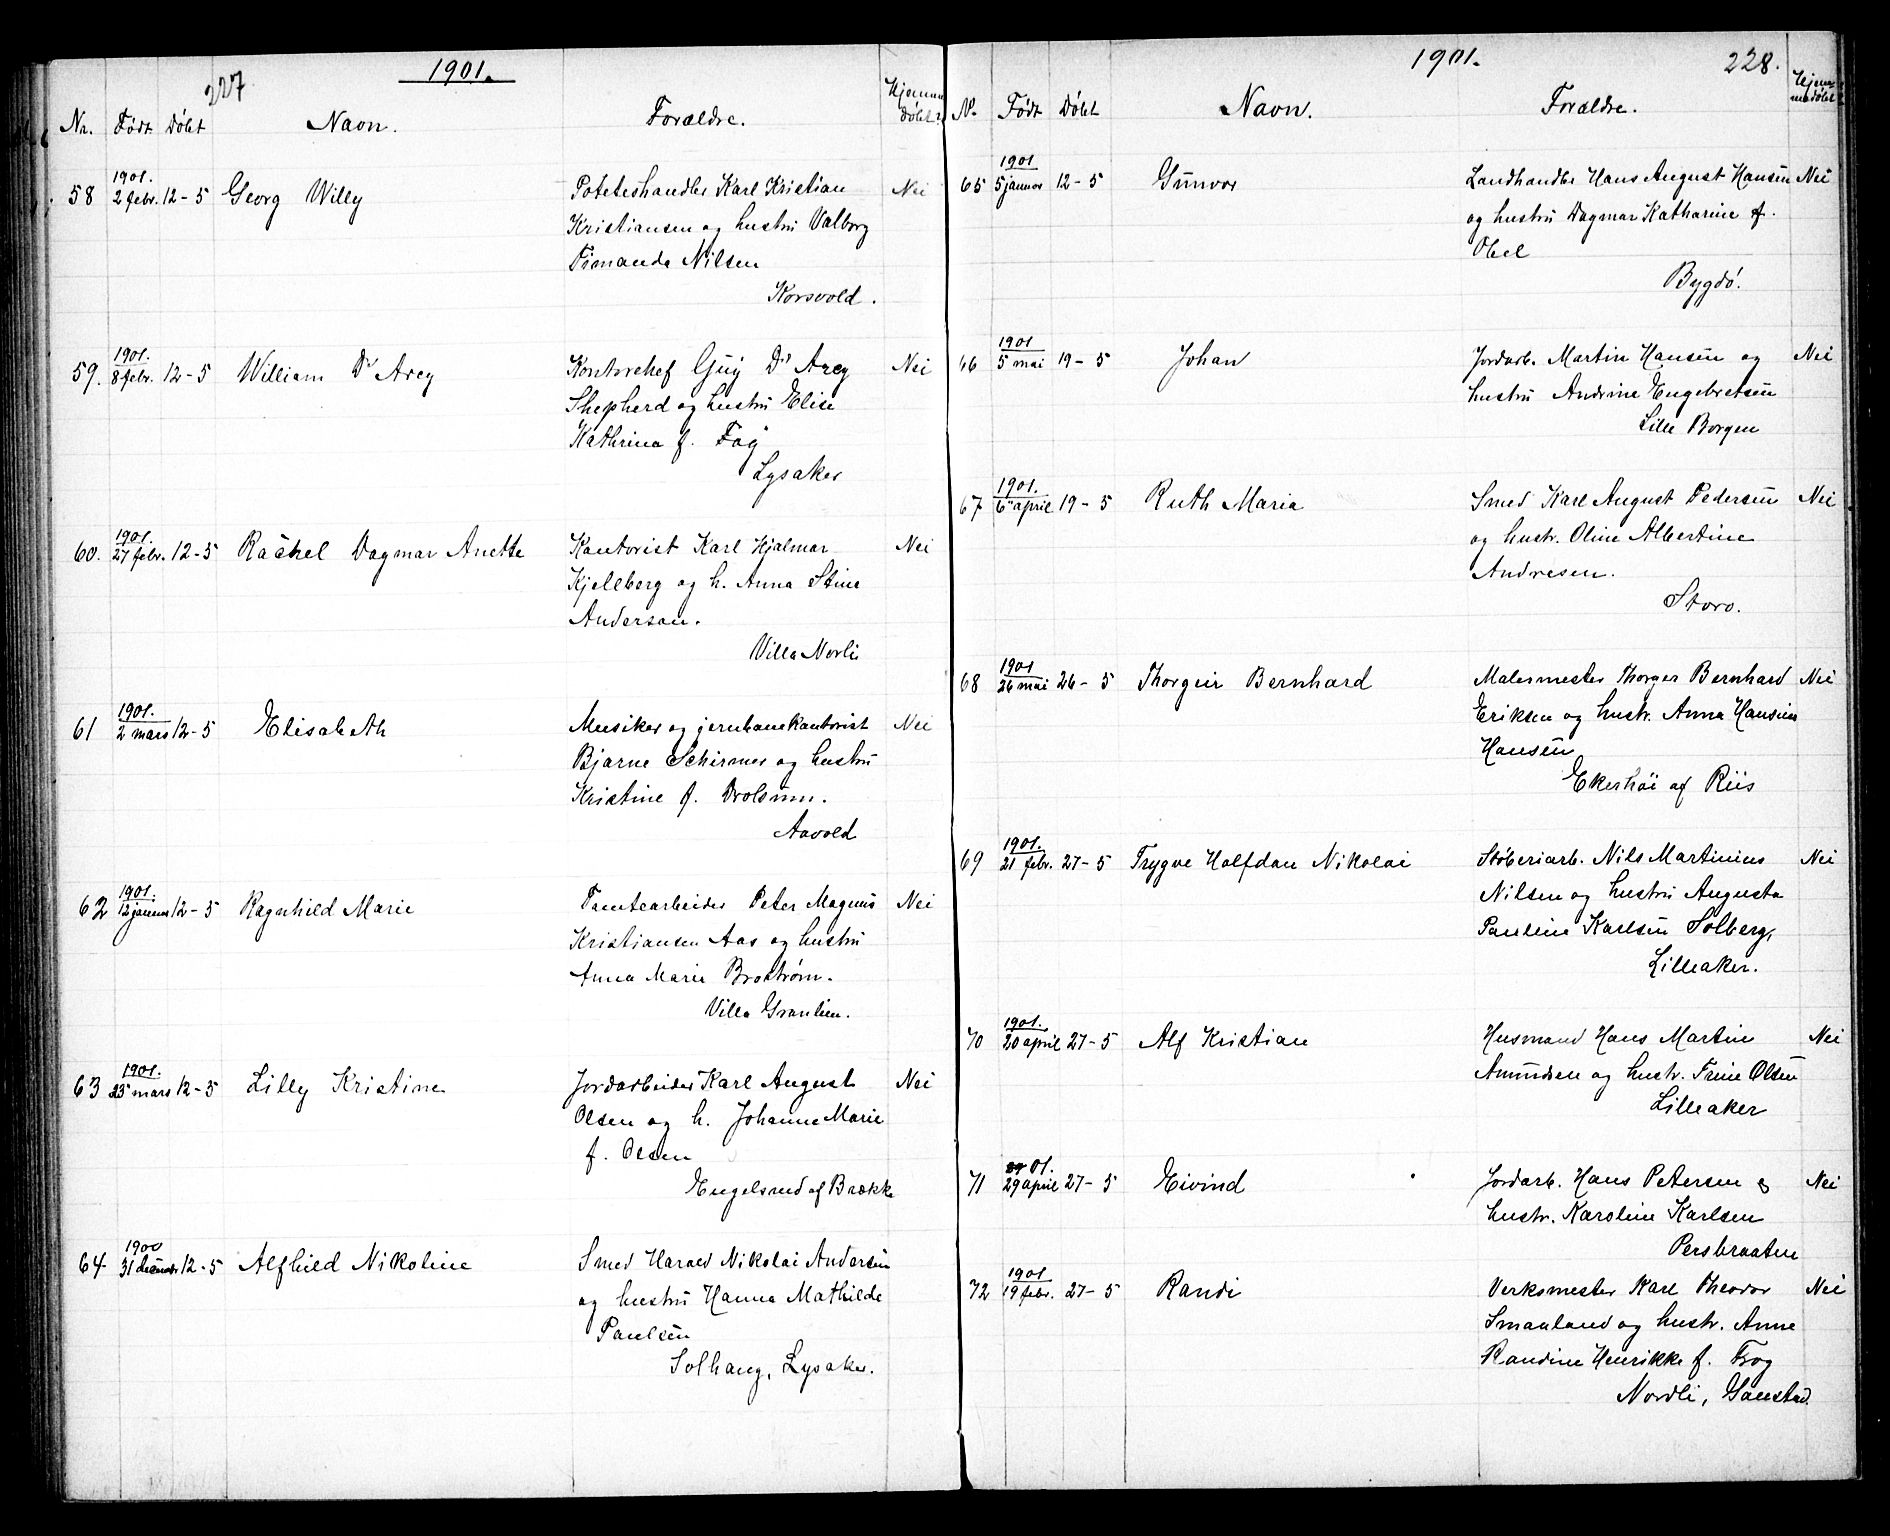 227 1901.
Nr. Født Døbt Navn. Forældre. Hjemme
døbt?
1901.
58 2 febr. 12-5 Georg Willy Poteteshandler Karl Kristian Nei
Kristiansen og hustru Valborg
Nilsen
Korsvold.
1901.
59. 8 febr. 12-5 William D' Arcy Kontorchef Guy D' Arcy Nei
Shepherd og hustru Elise
Kathrina f. Fog
Lysaker
1901.
60. 27 febr. 12-5 Rachel Dagmar Anette Kontorist Karl Hjalmar Nei
Kjellberg og h. Anna Stine
Anderson.
Villa Norli
1901.
61 2 mars 12-5 Elisabeth Musiker og jernbanekontorist Nei
Bjarne Schirmer og hustru
Kristine f. Drolsum.
Aavold
1901.
62 12 januar 12-5 Ragnhild Marie Tomtearbeider Peter Magnus Nei
Kristiansen Aas og hustru
Anna Marie Brostrøm.
Villa Granlien.
1901.
63 25 mars 12-5 Lilly Kristine Jordarbeider Karl August Nei
Olsen og h. Johanne Marie
f. Olsen
Engelsrud af Brække
1900
64 31 decembr. 12-5 Alfhild Nikoline Smed Harald Nikolai Andersen
og hustru Hanna Mathilde
Paulsen
Solhaug, Lysaker.
1901. 228.
Nr. Født Døbt Navn. Forældre. Hjem-
medøbt?
1901
65 5 januar 12-5 Gunvor Landhandler Hans August Hansen Nei
og hustru Dagmar Katharine f.
Obel
Bygdø.
1901
66 5 mai 19-5 Johan Jordarb. Martin Hansen og Nei
hustru Andrine Engebretsen
Lille Borgen
1901.
67 6 april 19-5 Ruth Maria Smed Karl August Pedersen Nei
og hustr. Oline Albertine
Andresen.
Storo.
1901
68 26 mai 26-5 Thorgeir Bernhard Malermester Thorger Bernhard Nei
Eriksen og hustr. Anna Hansine
Hansen
Ekerhøi af Riis
1901.
69 21 febr. 27-5 Trygve Halfdan Nikolai Støberiarb. Nils Martinius Nei
Nilsen og hustru Augusta
Pauline Karlsen Solberg,
Lilleaker.
1901.
70 20 april 27-5 Alf Kristian Husmand Hans Martin Nei
Amundsen og hustr. Trine Olsen
Lilleaker
01.
71 29 april 27-5 Eivind Jordarb. Hans Petersen og Nei
hustr. Karoline Karlsen
Persbraaten
1901
72 19 febr. 27-5 Randi Verksmester Karl Theodor Nei
Smaaland og hustr. Anne
Randine Henrikke f. Frog
Nordli, Gaustad.